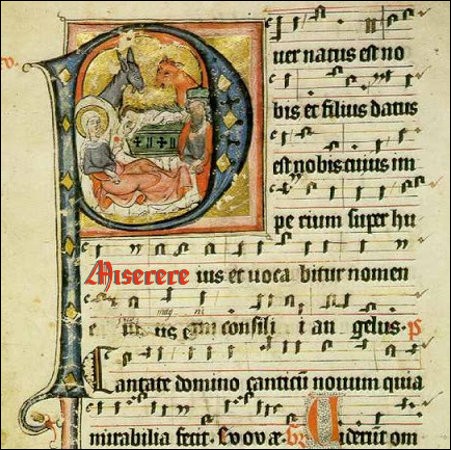 Puer natus est no
bis et filius datus
est nobis cuius im
pe rium super hu
Miserere ius et uoca bitur nomen
e consili i an gelus. p
Cantate domino canticū nouum quia
mirabilia fecit. Euouae. Uiderūt om